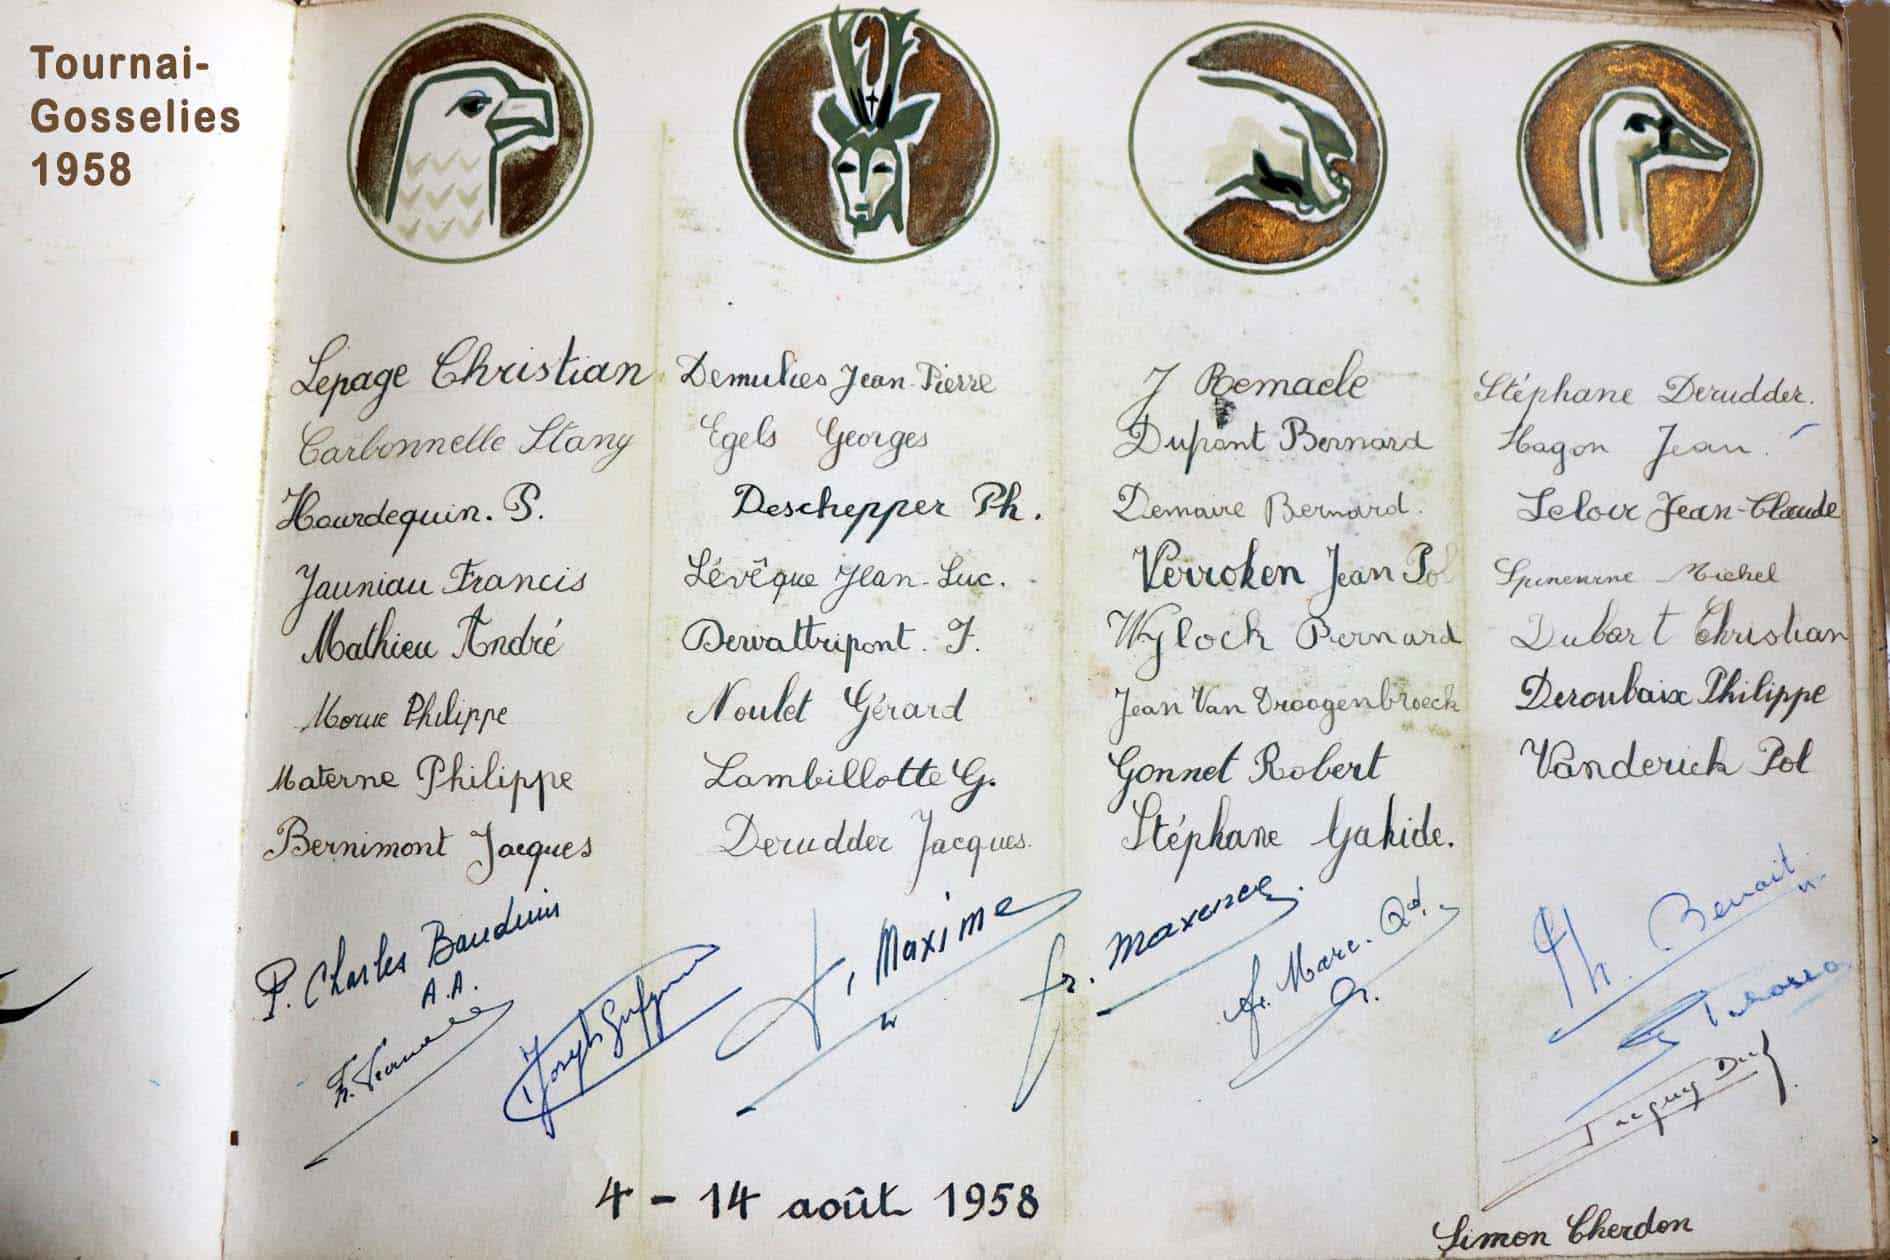 Tournai-
Gosselies
1958
Lepage Christian
Carbonnelle Stany
Hourdequin. P.
Jauniau Francis
Mathieu André
Morue Philippe
Materne Philippe
Bernimont Jacques
Demulies Jean-Pierre
Egels Georges
Deschepper Ph.
Lévêque Jean-Luc.
Dervattripont. F.
Noulet Gérard
Lambillotte G.
Derudder Jacques.
J Remacle
Dupont Bernard
Demaire Bernard.
Verroken Jean Pol
Wylock Bernard
Jean Van Droogenbroeck
Gonnet Robert
Stéphane Gahide.
Stéphane Derudder.
Hagon Jean.
Leloir Jean-Claude
Michel
Dubart Christian
Deroubaix Philippe
Vanderick Pol
P. Charles Baudouin
A.A.
Joseph
Maxime
fr. Maxence.
fr. Marc.
Ph. Benoit
Jacques
4 - 14 août 1958
Simon Cherdon